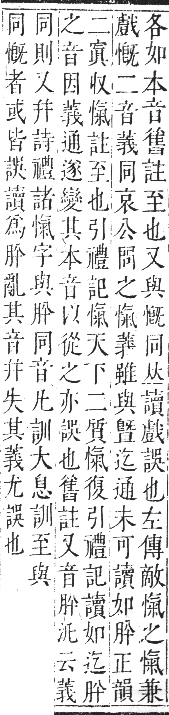 各如本音舊註至也又與慨同𠀤讀戲誤也左傳敵愾之愾兼
戲慨二音義同哀公問之愾義雖與曁迄通未可讀如肸正韻
二寘收愾註至也引禮記愾天下二質愾復引禮記讀如迄肸
之音因義通遂變其本音以從之亦誤也舊註又音肸沇云義
同則又幷詩禮諸愾字與肸同音凡訓大息訓至與
同慨者或皆誤讀爲肸亂其音幷失其義尤誤也